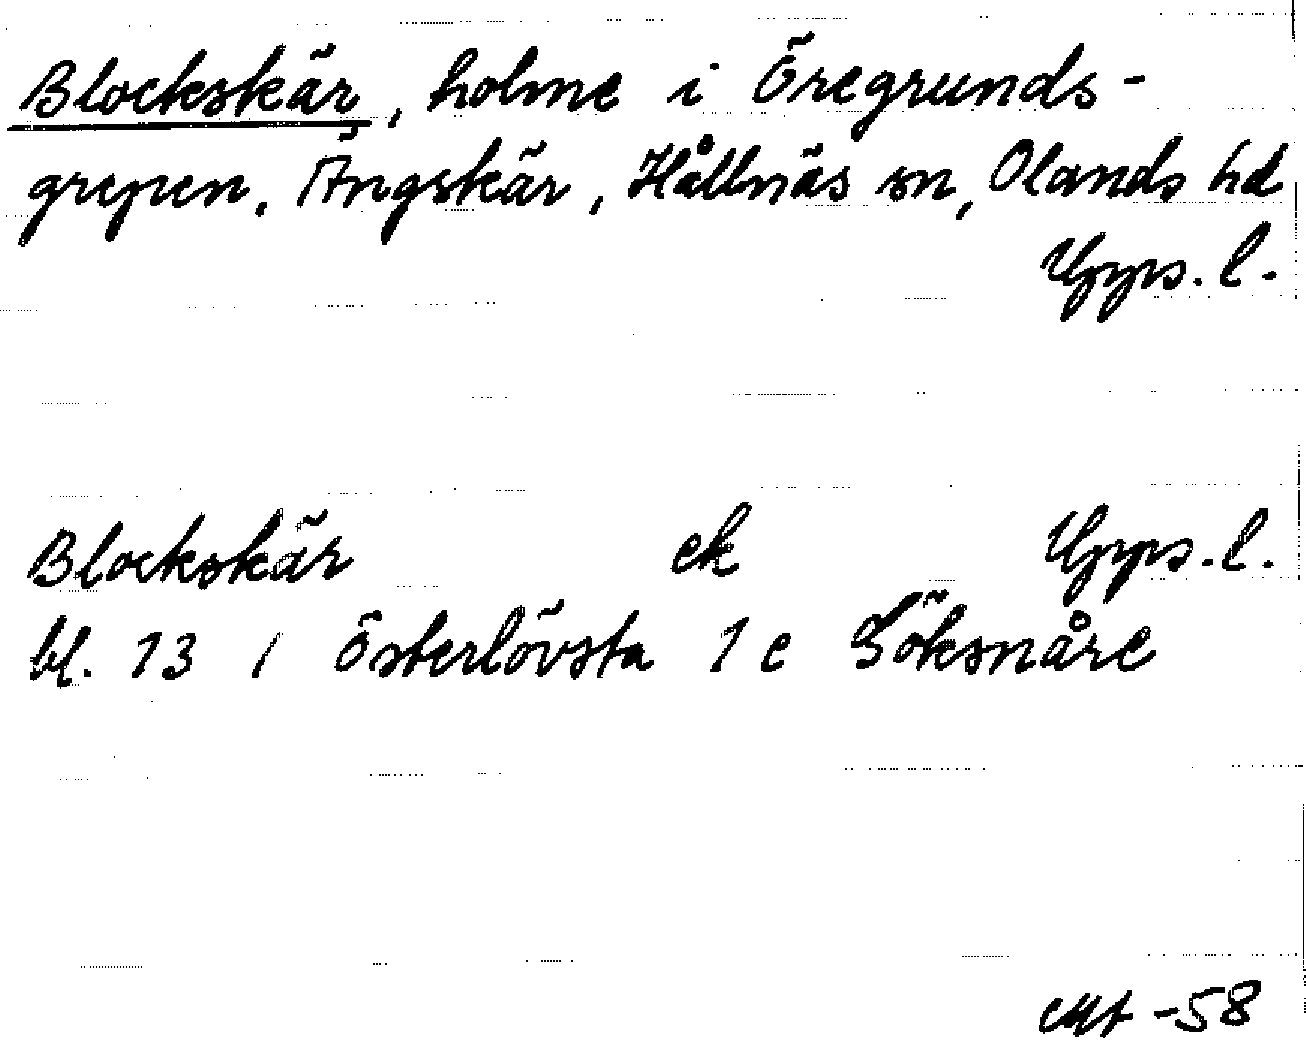 Blockskär, holme i Öregrunds-
grepen, Ängskär, Hållnäs sn, Olands hd
Upps. l.
Blockskär ek Upps. l.
bl. 13 / Österlövsta 1 e Söksnåre
-58